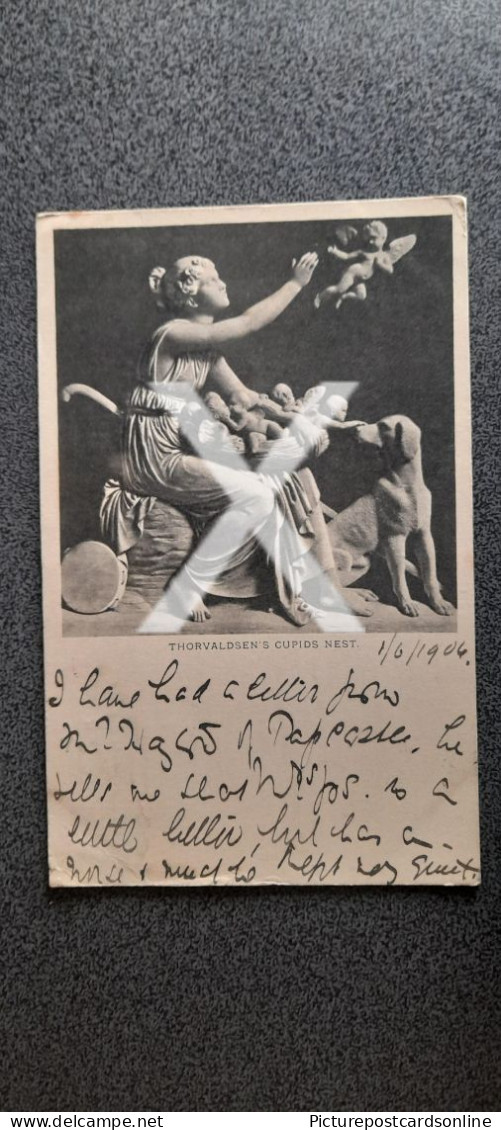 THORVALDSEN'S CUPIDS NEST.
1/6/1906.
I have had a letter from
Mr of Papcastle, he
tells me that Mrs is a
little better, but has a
nurse & must be kept very quiet.
delcampe.net
Picturepostcardsonline